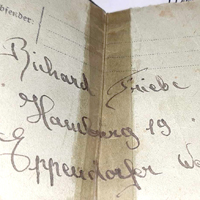 bsender:
Richard Friebe
Hamburg 19
Eppendorfer We